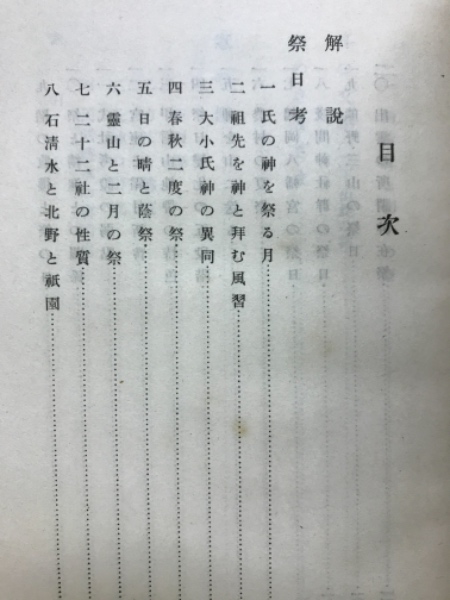 目次
解説
祭日考
一 氏の神を祭る月
二 祖先を神と拜む風習
三 大小氏神の異同
四 春秋二度の祭
五 日の晴と蔭祭
六 靈山と二月の祭
七 二十二社の性質
八 石清水と北野と祇園